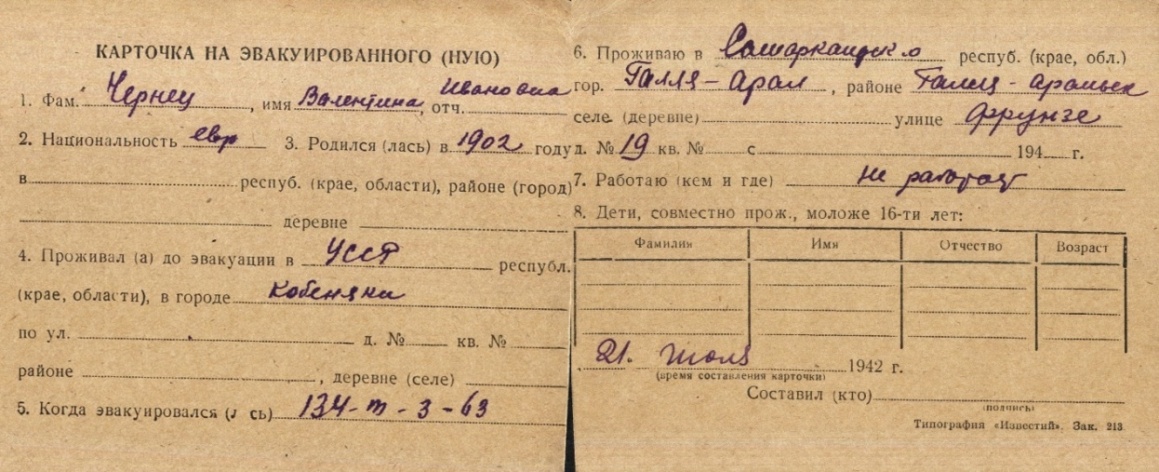 КАРТОЧКА НА ЭВАКУИРОВАННОГО (НУЮ)
1. Фам. Чернец, имя Валентина, отч. Ивановна
2. Национальность евр 3. Родился (лась) в 1902 году
в респуб. (крае, области), районе (город)
деревне
4. Проживал (а) до эвакуации в УССР республ.
(крае, области), в городе Кобеляки
по ул. д. № кв. №
районе , деревне (селе)
5. Когда эвакуировался (л сь) 134-т-3-63
6. Проживаю в Самаркандско респуб. (крае, обл.)
гор. Галля-Арал, районе Галля-Аральск
селе (деревне) улице Фрунзе
д. № 19 кв. № с 194 г.
7. Работаю (кем и где) не работает
8. Дети, совместно прож., моложе 16-ти лет:
Фамилия Имя Отчество Возраст
21. Июля 1942 г.
(время составления карточки)
Составил (кто)
(подпись)
Типография «Известий». Зак. 213